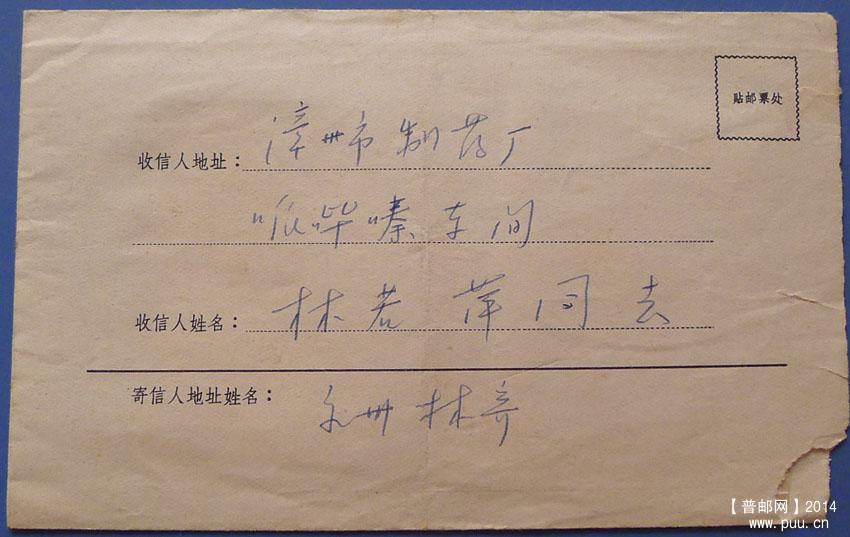 贴邮票处
收信人地址：漳州市制药厂
哌哔嗪车间
收信人姓名：林若萍同志
寄信人地址姓名：州林寄
【普邮网】2014
www.puu.cn